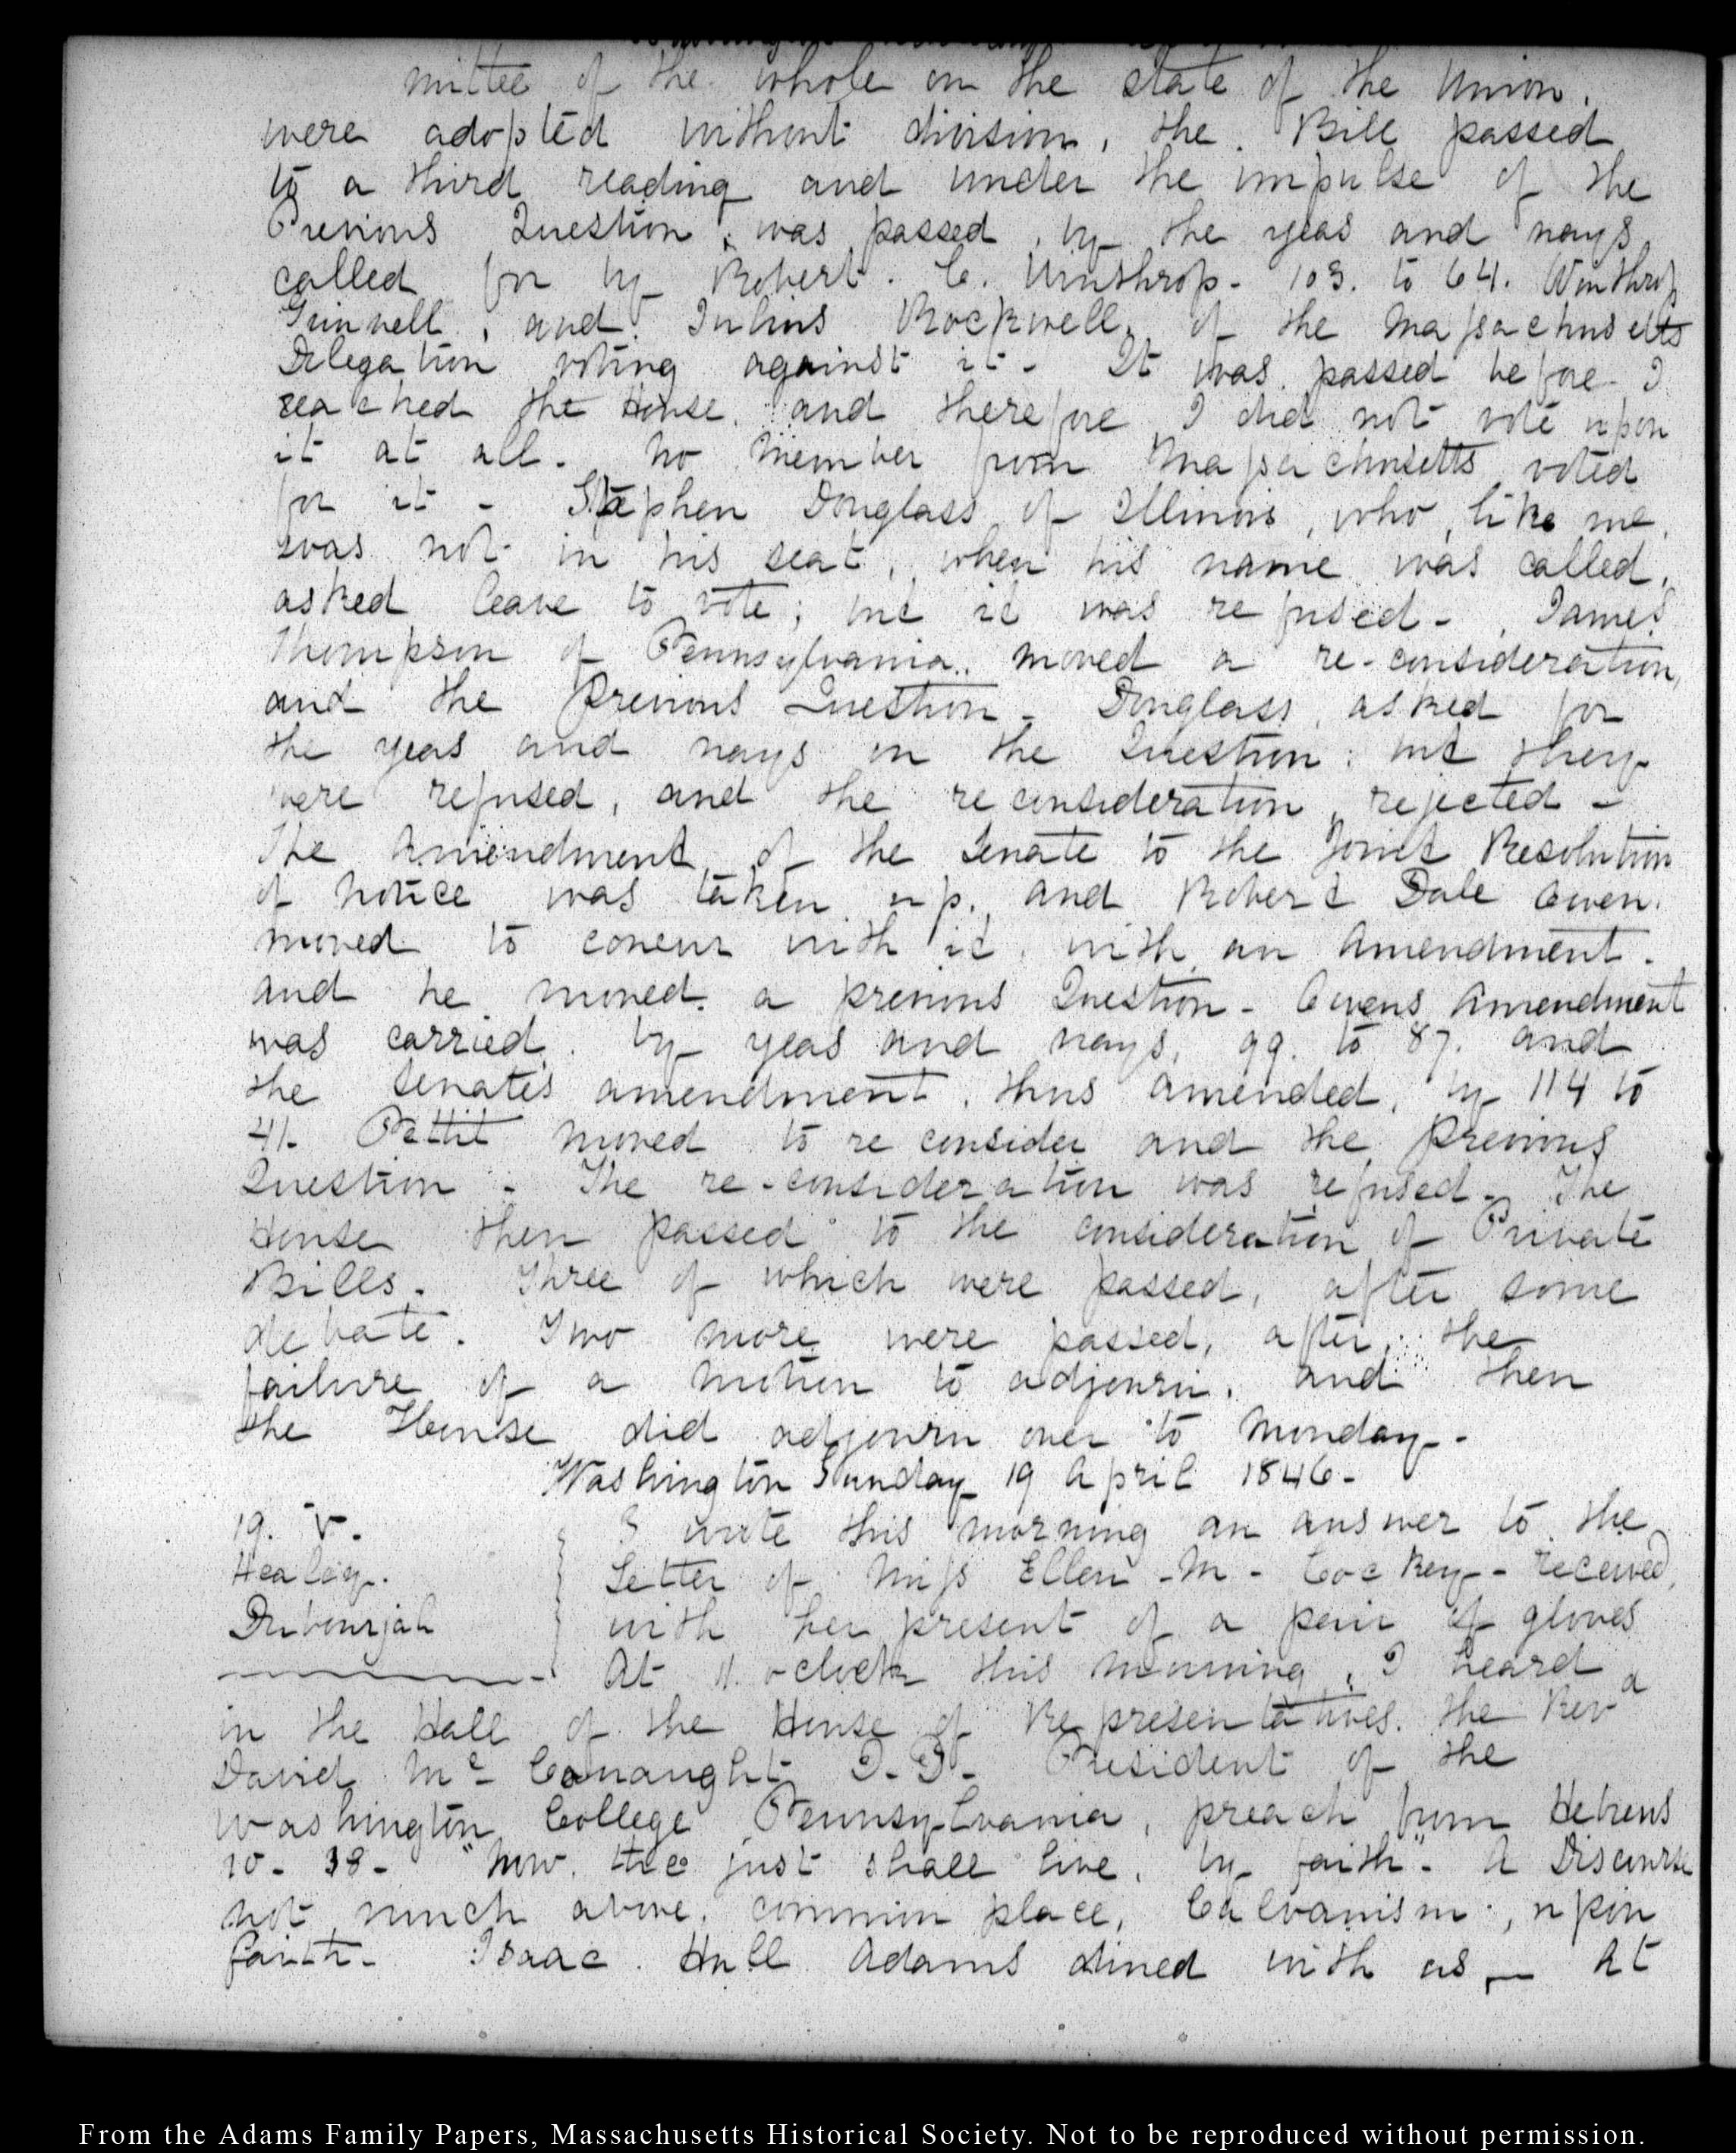 mittee of the whole on the state of the Union.
were adopted without division, the Bill passed
to a third reading and under the impulse of the
Previous Question, was passed, by the yeas and nays
called for by Robert. C. Winthrop - 103. to 64. Winthrop
Grinnell, and Julius Rockwell, of the Massachusetts
Delegation voting against it - It was passed before I
reached the House, and therefore I did not vote upon
it at all - No Member from Massachusetts voted
for it - Stephen Douglass of Illinois, who, like me,
was not in his seat, when his name was called,
asked leave to vote; but it was refused - James
Thompson of Pennsylvania, moved a re-consideration,
and the Previous Question - Douglass, asked for
the yeas and nays on the Question: but they
were refused, and the reconsideration, rejected -
The Amendment of the Senate to the Joint Resolution
of Notice was taken up, and Robert Dale Owen
moved to concur with it, with an Amendment -
and he moved a previous Question - Owens Amendment
was carried by yeas and nays, 99. to 87. and
the Senate's amendment, thus amended, by 114 to
41. Pettit moved to re consider and the Previous
Question - The re-consideration was refused - The
House then passed to the consideration of Private
Bills. Three of which were passed, after some
debate. Two more were passed, after the
failure of a motion to adjourn, and then
the House did adjourn over to Monday -
Washington Sunday 19 April 1846 -
19. V. I wrote this morning an answer to the
Healey. Letter of Miss Ellen - M - Cockey - received,
Dubourjal with her present of a pair of gloves
At 11. oclock this morning, I heard
in the Hall of the House of Representatives, the Revd
David Mc Conaught D. D. President of the
Washington College Pennsylvania, preach from Hebrews
10 - 38 - "Now the just shall live, by faith" - A Discourse
not much above, common place, Calvanism, upon
faith - Isaac Hull Adams dined with us - At
From the Adams Family Papers, Massachusetts Historical Society. Not to be reproduced without permission.